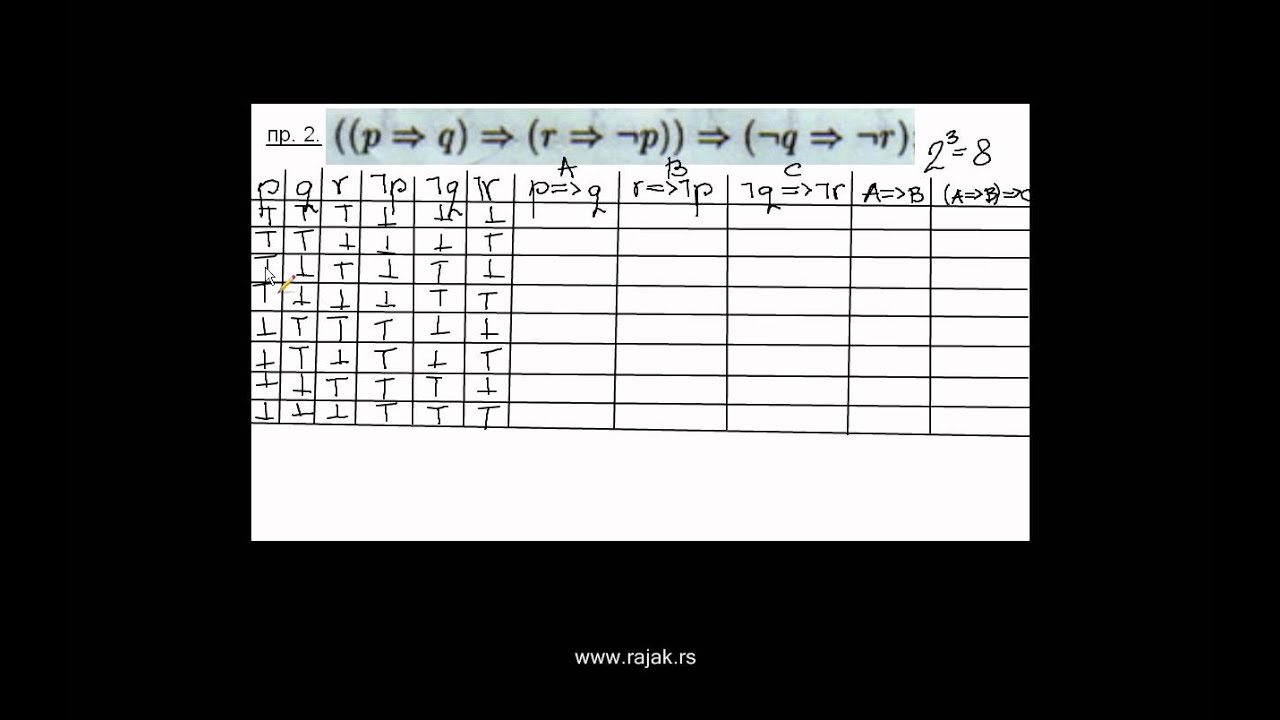 пр. 2. ((p ⇒ q) ⇒ (r ⇒ ¬p)) ⇒ (¬q ⇒ ¬r) 2³=8
A B C
p q r ¬p ¬q ¬r p=>q r=>¬p ¬q=>¬r A=>B (A=>B)=>C
T T T ⊥ ⊥ ⊥
T T ⊥ ⊥ ⊥ T
T ⊥ T ⊥ T ⊥
T ⊥ ⊥ ⊥ T T
⊥ T T T ⊥ ⊥
⊥ T ⊥ T ⊥ T
⊥ ⊥ T T T ⊥
⊥ ⊥ ⊥ T T T
www.rajak.rs